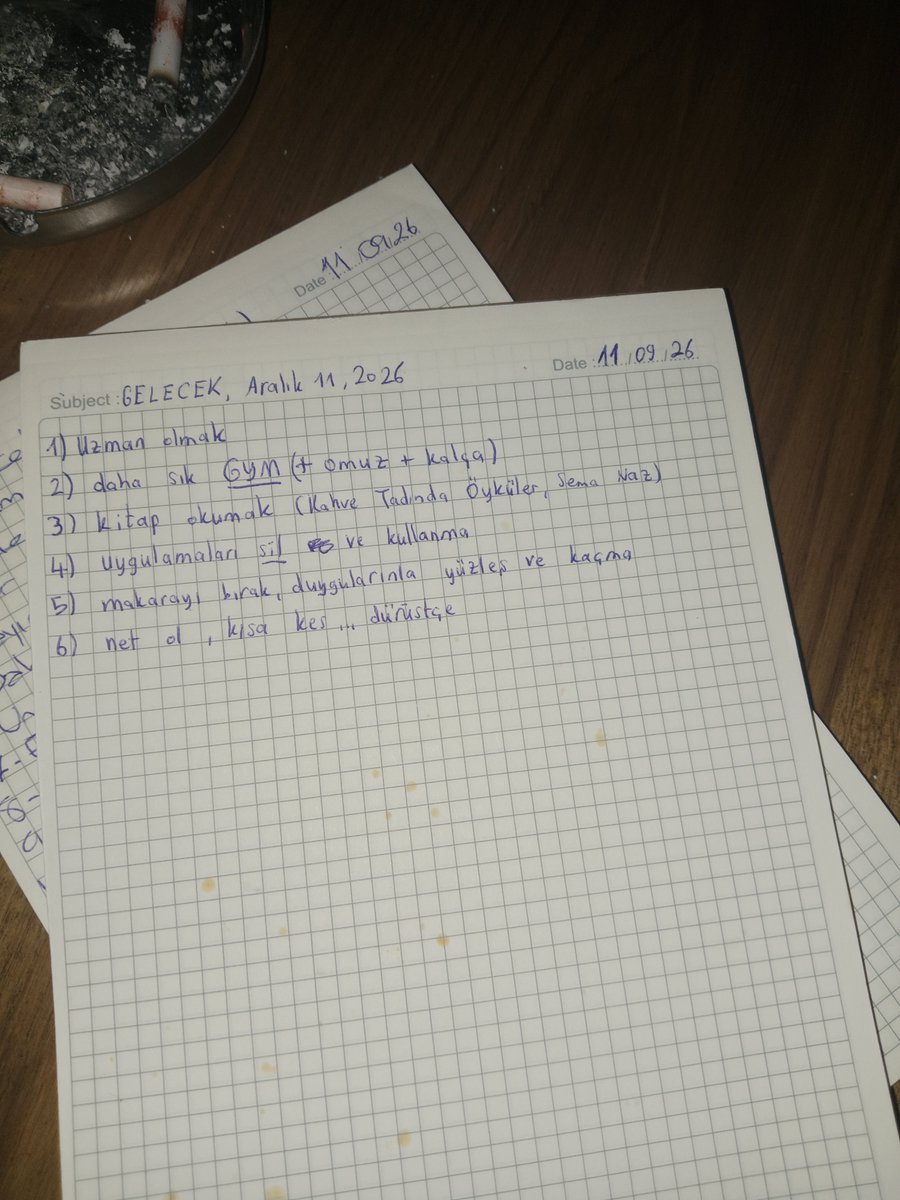 Date : 11.09.26
Subject : GELECEK, Aralık 11, 2026
Date : 11/09/26
1) Uzman olmak
2) daha sık GYM (+ omuz + kalça)
3) kitap okumak (Kahve Tadında Öyküler, Sema Naz)
4) uygulamaları sil ve kullanma
5) makarayı bırak, duygularınla yüzleş ve kaçma
6) net ol, kısa kes ... dürüstçe